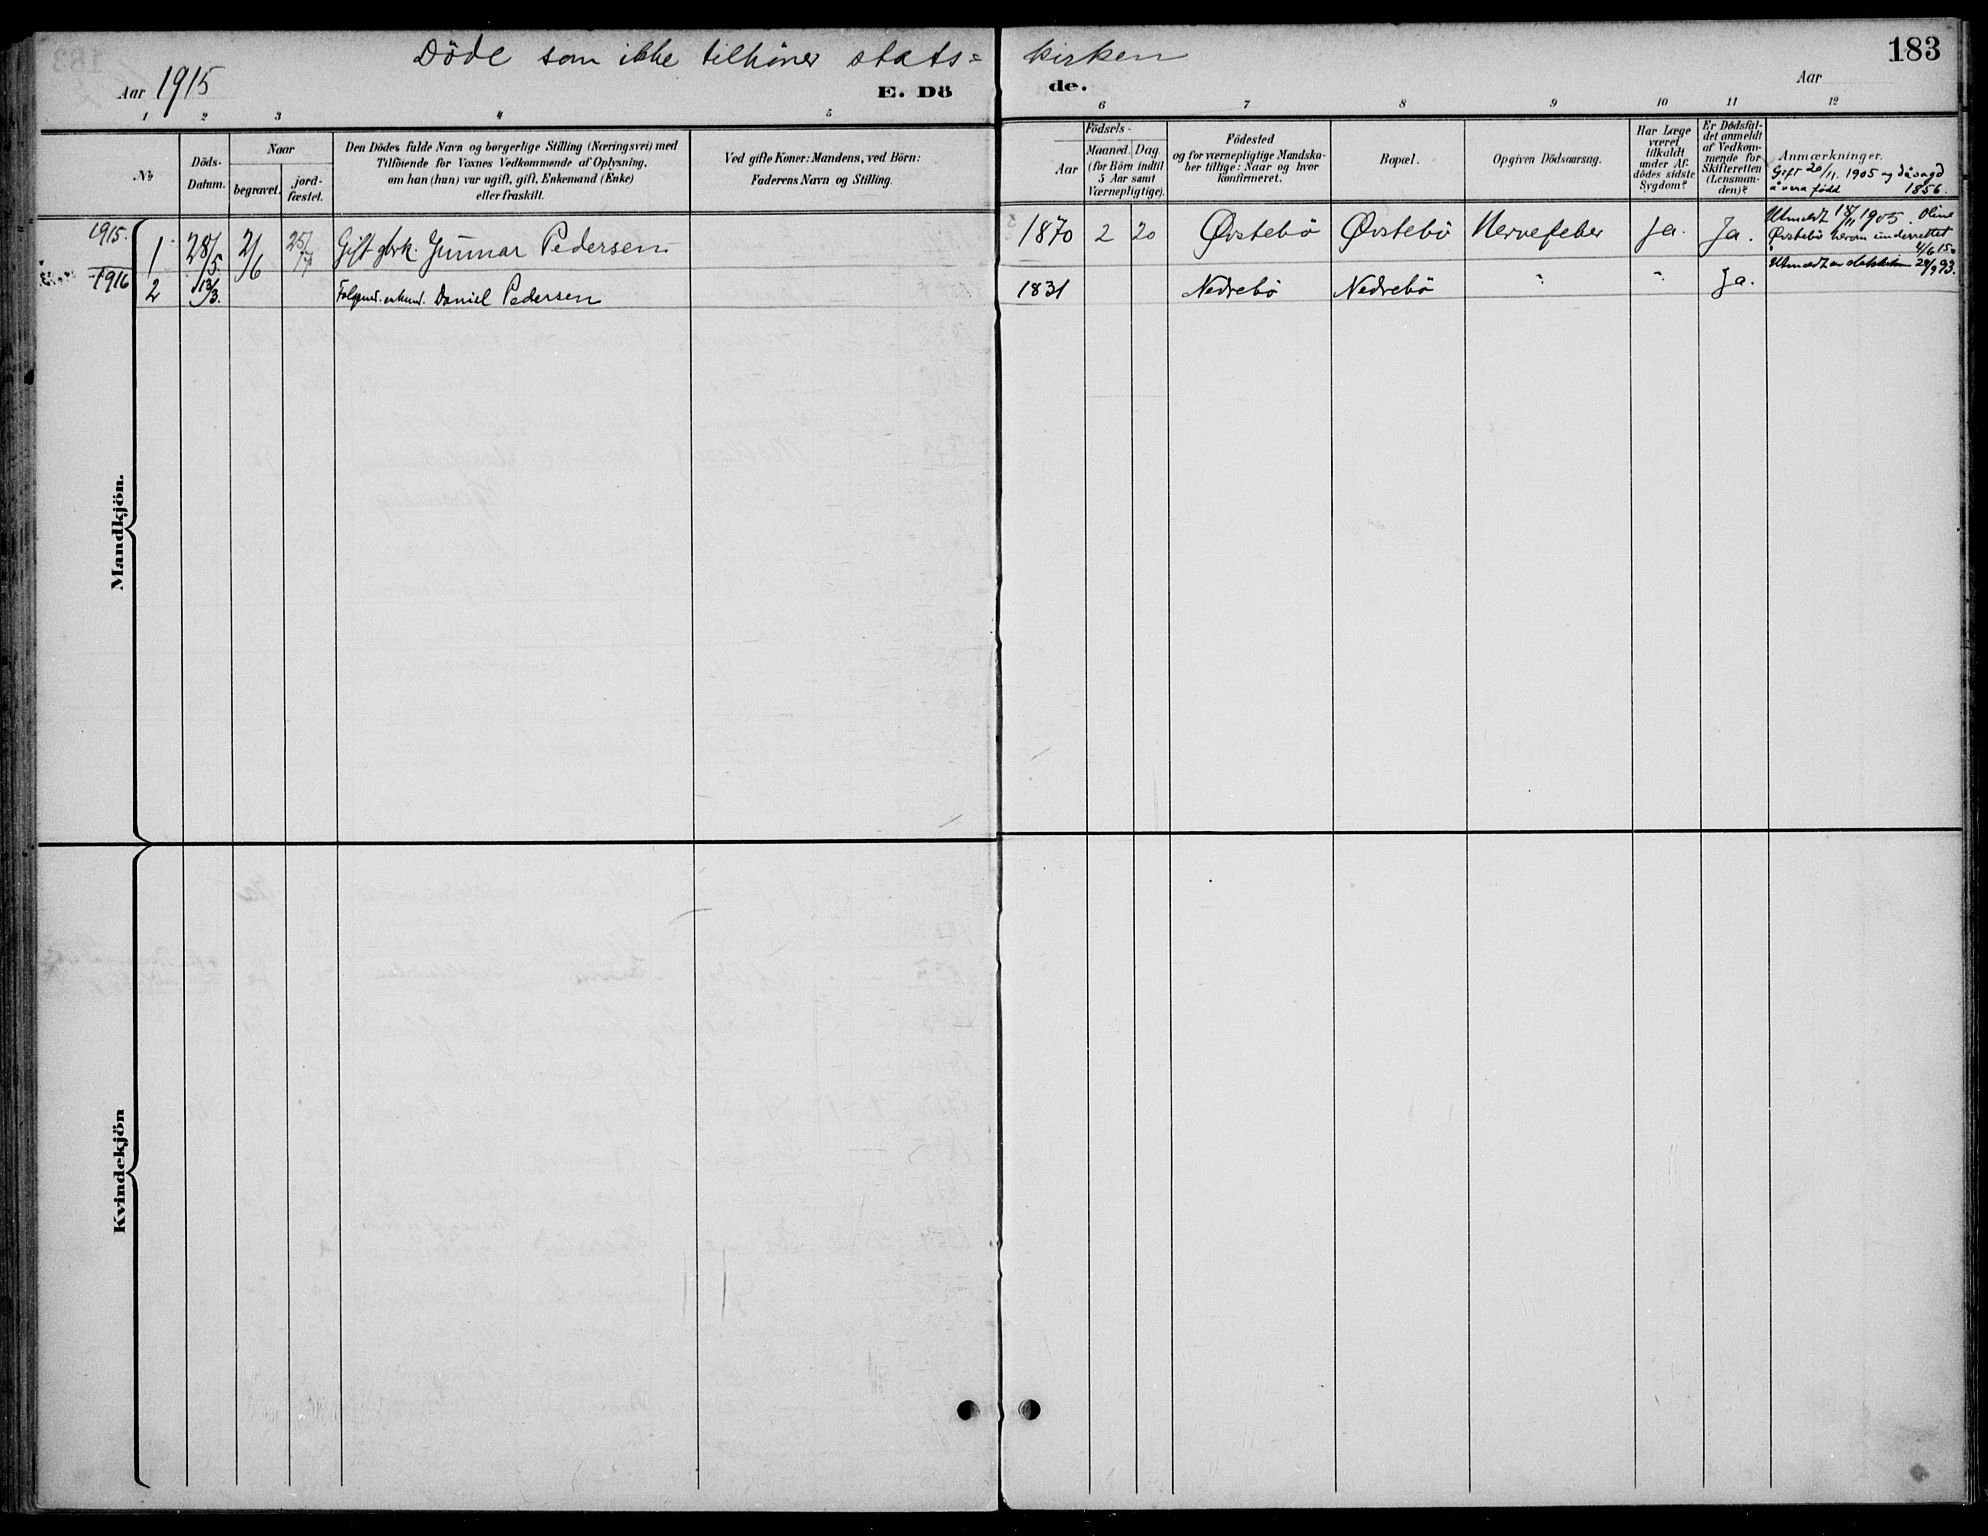 Döde som ikke tilhører stats=kirken
183
Aar 1915
E. Döde.
Aar
1 2 3 4 5 6 7 8 9 10 11 12
No
Döds-Datum.
Naar
begravet.
jord-fæstet.
Den Dödes fulde Navn og borgerlige Stilling (Næringsvei) med
Tilföiende for Voxnes Vedkommende af Oplysning,
om han (hun) var ugift, gift, Enkemand (Enke)
eller fraskilt.
Ved gifte Koner: Mandens, ved Börn:
Faderens Navn og Stilling.
Födsels-
Aar
Maaned. Dag.
(for Börn indtil
5 Aar samt
Værnepligtige).
Födested
og for værnepligtige Mandska-
ber tillige: Naar og hvor
konfirmeret.
Bopæl.
Opgiven Dödsaarsag.
Har Læge
været
tilkaldt
under Af-
dödes sidste
Sygdom?
Er Dödsfal-
det anmeldt
af Vedkom-
mende for
Skifteretten
(Lensman-
den)?
Anmærkninger.
Gift 20/11. 1905 og då sagd
å vera född 1856.
1915.
1 28/5. 2/6 25/7 Gift gbrk. Gunnar Pedersen 1870 2 20 Øvstebö Øvstebö Nervefeber Ja. Ja. Utmeldt 18/11 1905. Oline
Øvstebö herom underrettet
4/6 15.
1916
2 13/3. Daniel Pedersen 1831 Nedrebö Nedrebö " " Ja. Utmeldt av statskirken 29/9 93.
Mandkjön.
Kvindekjön